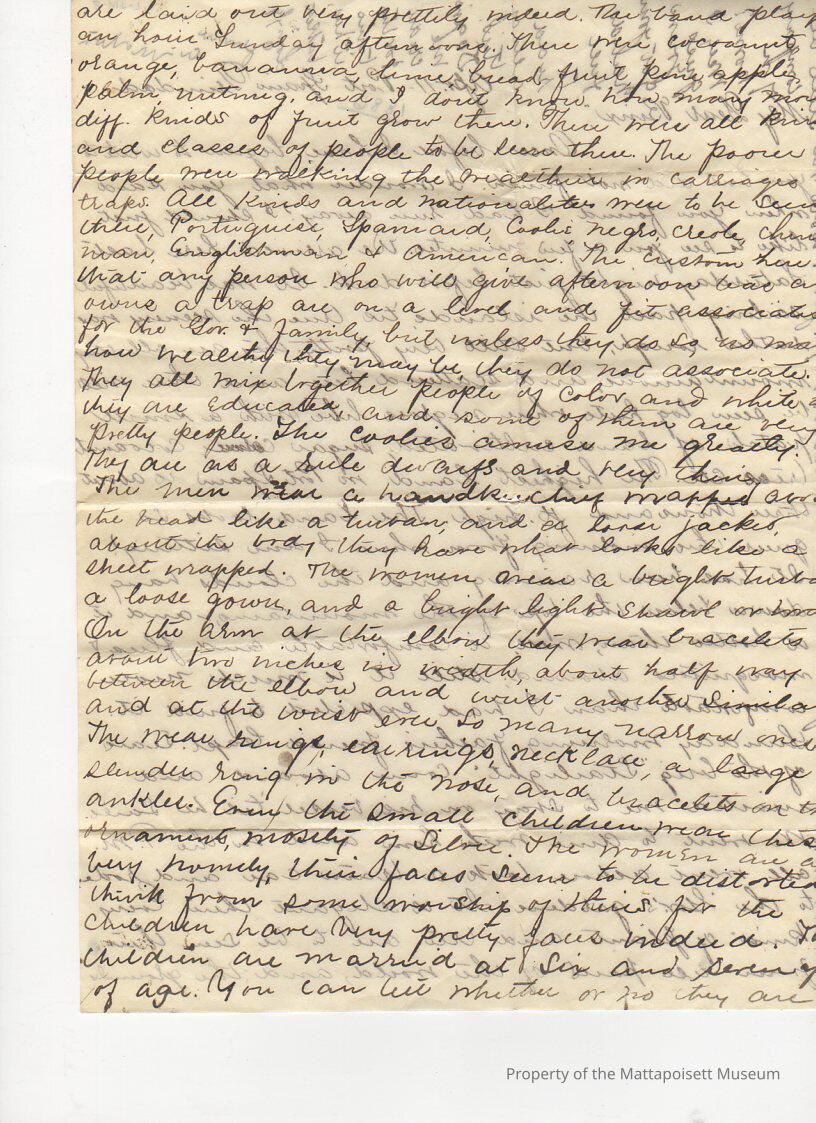 are laid out very prettily indeed. The band play
an hour Sunday afternoon. There were cocoanut,
orange, bananna, lime, bread fruit pine apple,
palm, nutmeg, and I don't know how many mor
diff. kinds of fruit grow there. There were all kin
and classes of people to be seen there. The poorer
people were walking the wealthier in carriages
traps. All kinds and nationalities were to be seen
there, Portuguese, Spaniard, Coolie negro, creole, chin
man, Englishman, & American. The custom here
that any person who will give afternoon tea a
owns a trap are on a level and fit associates
for the Gov. & family, but unless they do so no mat
how wealthy they may be, they do not associate.
They all mix together people of color and white a
they are educated, and some of them are very
pretty people. The coolies amuse me greatly.
They are as a rule dwarfs and very thin.
The men wear a handkerchief wrapped abo
the head like a turban, and a loose jacket,
about the body they have what looks like a
sheet wrapped. The women wear a bright turba
a loose gown, and a bright light shawl or
On the arm at the elbow they wear bracelets
about two inches in width about half way
between the elbow and wrist another simila
and at the wrist ever so many narrow ones
The wear rings, earrings, necklace, a large
slender ring in the nose, and bracelets on th
ankles. Even the small children wear thes
ornament, mostly of Silver The women are a
very homely, their faces seem to be distorted
think from some worship of theirs for the
children have very pretty faces indeed. Th
children are married at six and seven y
of age. You can tell whether or no they are
Property of the Mattapoisett Museum